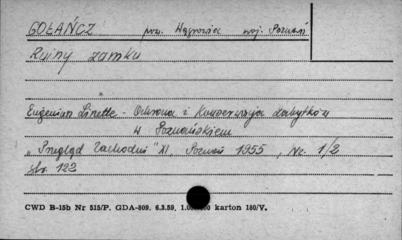 GOŁAŃCZ pow. Wągrowiec woj. Poznań
Ruiny zamku
Eugeniusz Linette - Ochrona i Konserwacja Zabytków
w Poznańskiem
"Przegląd Zachodni" XI, Poznań 1955, Nr. 1/2
str. 122
CWD B-15b Nr 515/P. GDA-809. 6.3.59. karton 180/V.